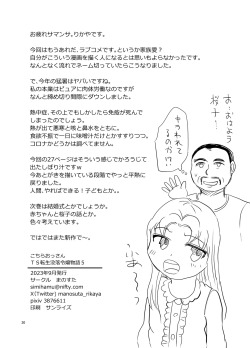 お疲れサマンサ。りかやです。
今回はもうあれだ、ラブコメです。というか家族愛?
自分がこういう漫画を描く人になるとは思いもよらなかったです。
なんとなく流れでネーム切っていたらこうなりました。
で、今年の猛暑はヤバいですね。
私の本業はピュアに肉体労働なのですが
なんと締め切り間際にダウンしました。
熱中症、その上でもしかしたら免疫が死んで
しまったのでしょう。
熱が出て悪寒と咳と鼻水をともに、
食欲不振で一日に味噌汁だけとかすすりつつ。
コロナかどうかは調べてません。
今回の27ページはそういう感じでかろうじて
出たしぼり汁ですｗ
今あとがきを描いている段階でやっと平熱に
戻りました。
人間、やればできる!子どもとか。
次巻は結婚式とかでしょうか。
赤ちゃんと桜子の話とか、
色々考えています。
ではではまた新作で～。
こちらおっさん
ＴＳ転生没落令嬢物語５
2023年9月発行
サークル　まのすた
simihamu@nifty.com
X(Twitter) manosuta_rikaya
pixiv 3876611
印刷　サンライズ
お…おはよう
桜子…
きらわれてるのか!?
30